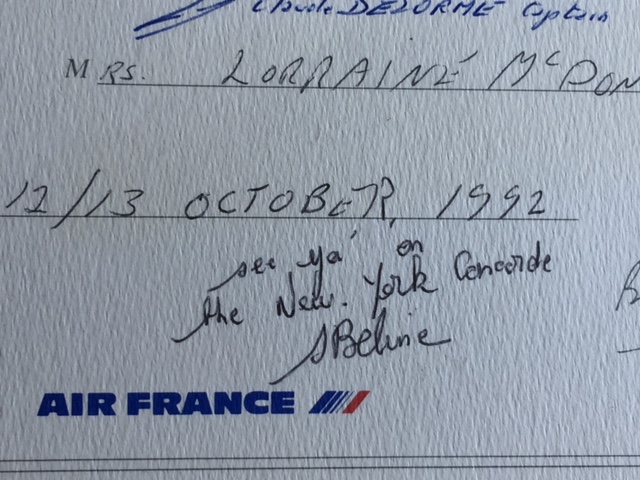 Claude DELORME Captain
MRS. LORRAINE McDON
12/13 OCTOBER, 1992
see ya' on
the New York Concorde
SBeline
AIR FRANCE